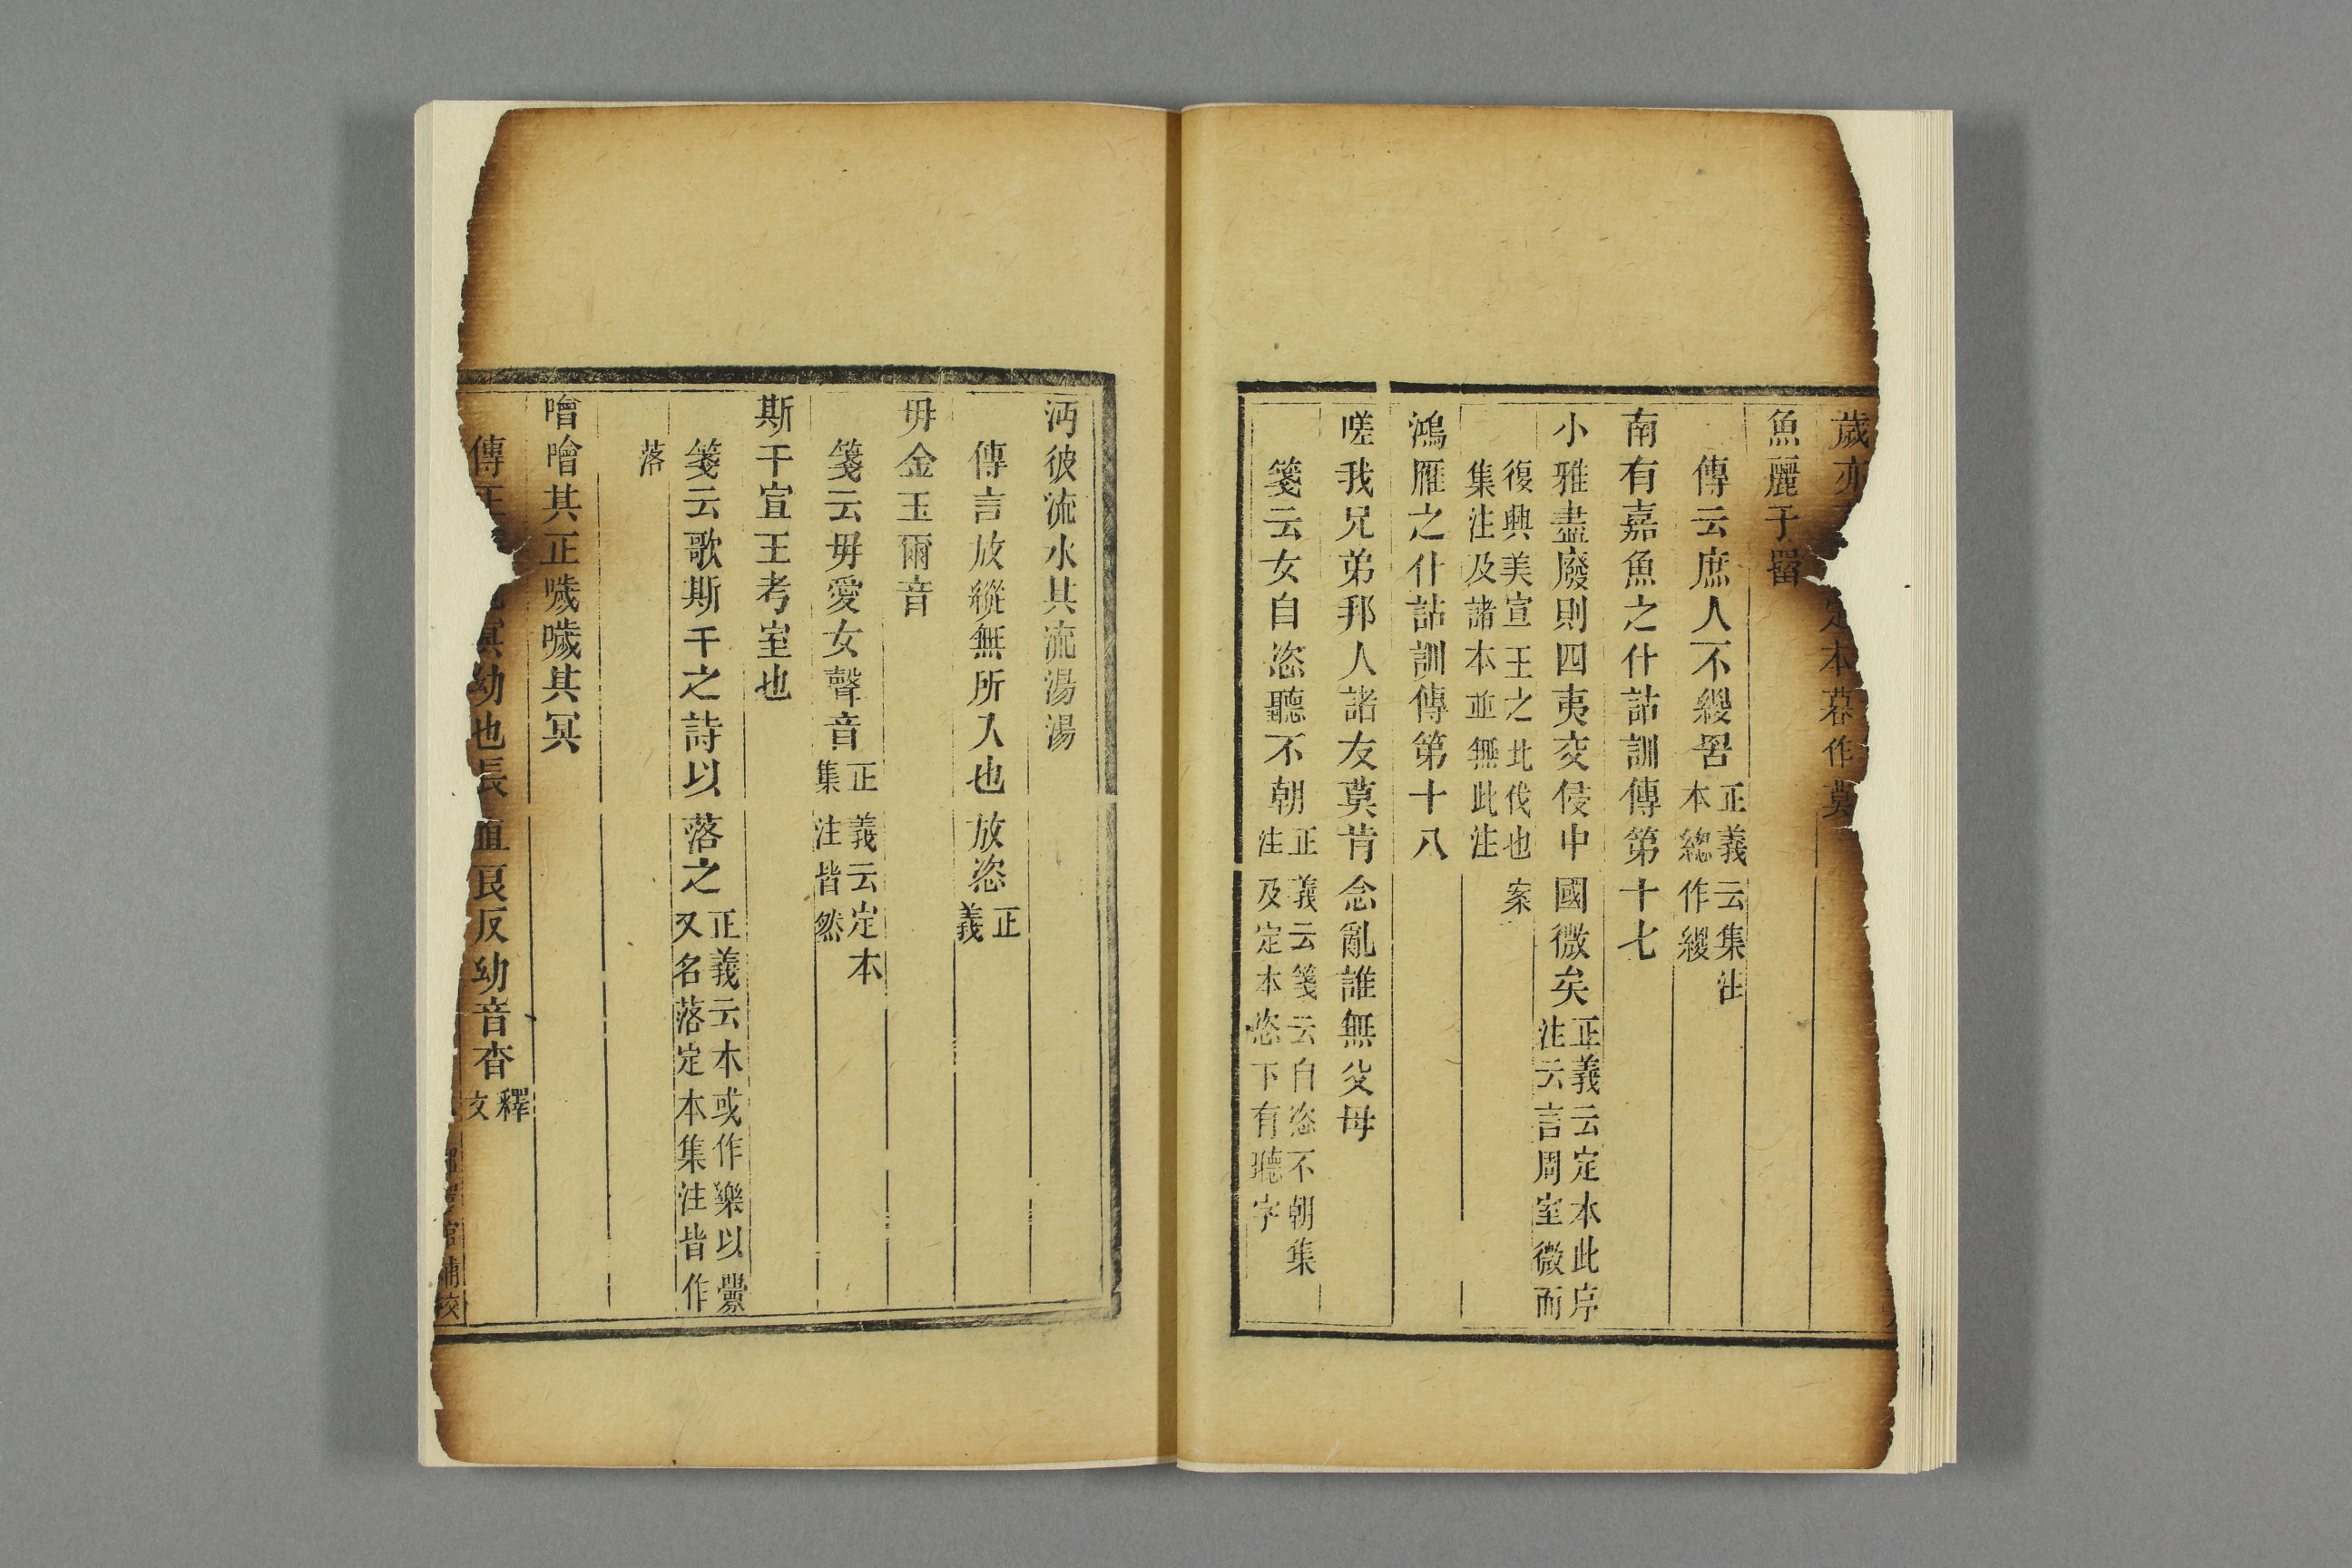 歲亦 定本暮作莫
魚麗于罶
傳云庶人不緵罟正義云集注本緫作緵
南有嘉魚之什詁訓傳第十七
小雅盡廢則四夷交侵中國微矣正義云定本此序注云言周室微而
復興美宣王之北伐也案集注及諸本並無此注
鴻雁之什詁訓傳第十八
嗟我兄弟邦人諸友莫肯念亂誰無父母
箋云女自恣聽不朝正義云箋云自恣不朝集注及定本恣下有聽字
沔彼流水其流湯湯
傳言放縱無所入也放恣正義
毋金玉爾音
箋云毋愛女聲音正義云定本集注皆然
斯干宣王考室也
箋云歌斯干之詩以落之正義云本或作樂以釁又名落定本集注皆作
落
噲噲其正噦噦其冥
傳正 冥幼也長 直良反幼音杳釋文
館補校